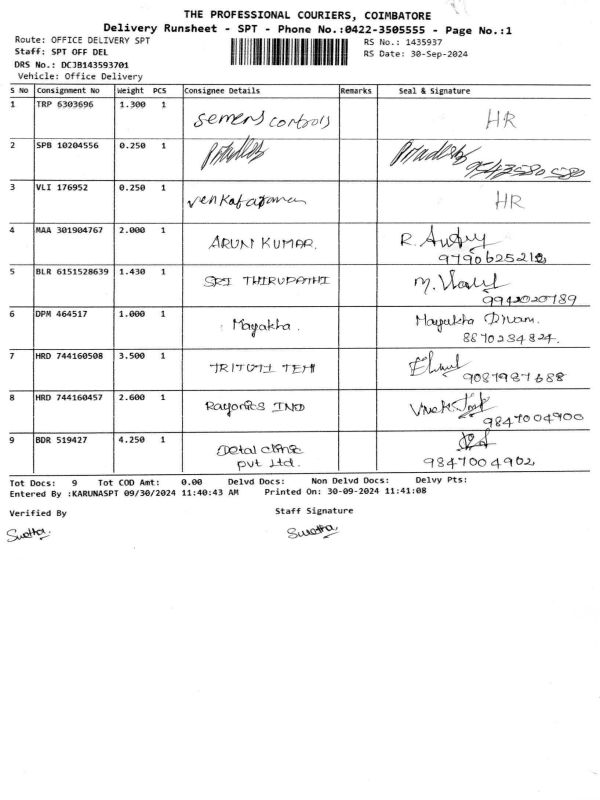 THE PROFESSIONAL COURIERS, COIMBATORE
Delivery Runsheet - SPT - Phone No.:0422-3505555 - Page No.:1
Route: OFFICE DELIVERY SPT RS No.: 1435937
Staff: SPT OFF DEL RS Date: 30-Sep-2024
DRS No.: DCJB143593701
Vehicle: Office Delivery
S No Consignment No Weight PCS Consignee Details Remarks Seal & Signature
1 TRP 6303696 1.300 1 semens controls HR
2 SPB 10204556 0.250 1 Pradeesh
3 VLI 176952 0.250 1 venkataraman HR
4 MAA 301904767 2.000 1 ARUN KUMAR. R.
9790625212
5 BLR 6151528639 1.430 1 SRI THIRUPATHI M.
9942020789
6 DPM 464517 1.000 1 Mayakha. Mayukha Dham.
8870234824.
7 HRD 744160508 3.500 1
9087987688
8 HRD 744160457 2.600 1 Rayonics IND
9847004900
9 BDR 519427 4.250 1 Detal clinic
pvt Ltd. 9847004902
Tot Docs: 9 Tot COD Amt: 0.00 Delvd Docs: Non Delvd Docs: Delvy Pts:
Entered By :KARUNASPT 09/30/2024 11:40:43 AM Printed On: 30-09-2024 11:41:08
Verified By Staff Signature